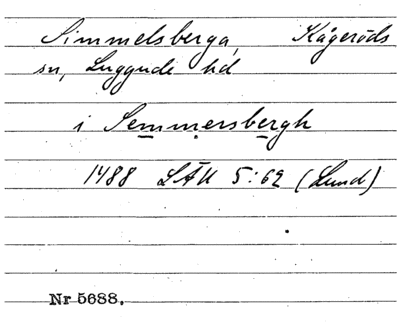 Simmelsberga, Kågeröds
sn, Luggude hd
i Semmersbergh
1488 LÄU 5:62 (Lund)
Nr 5688.